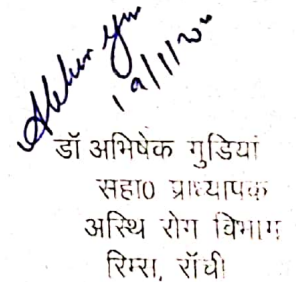 19/11/20
डॉ अभिषेक गुडियां
सहा0 प्राध्यापक
अस्थि रोग विभाग
रिम्स, राँची